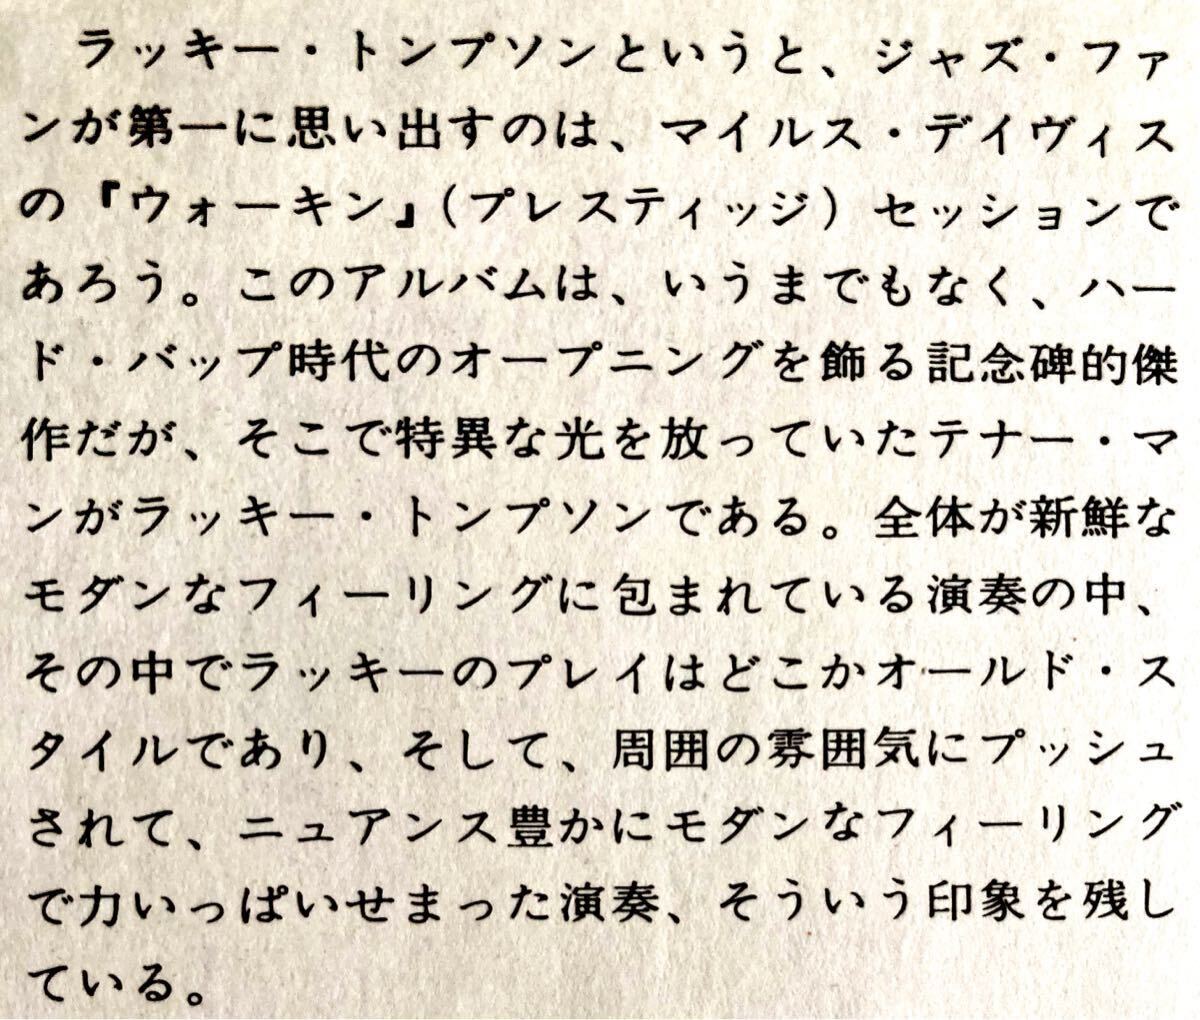 ラッキー・トンプソンというと、ジャズ・ファ
ンが第一に思い出すのは、マイルス・デイヴィス
の『ウォーキン』（プレスティッジ）セッションで
あろう。このアルバムは、いうまでもなく、ハー
ド・バップ時代のオープニングを飾る記念碑的傑
作だが、そこで特異な光を放っていたテナー・マ
ンがラッキー・トンプソンである。全体が新鮮な
モダンなフィーリングに包まれている演奏の中、
その中でラッキーのプレイはどこかオールド・ス
タイルであり、そして、周囲の雰囲気にプッシュ
されて、ニュアンス豊かにモダンなフィーリング
で力いっぱいせまった演奏、そういう印象を残し
ている。